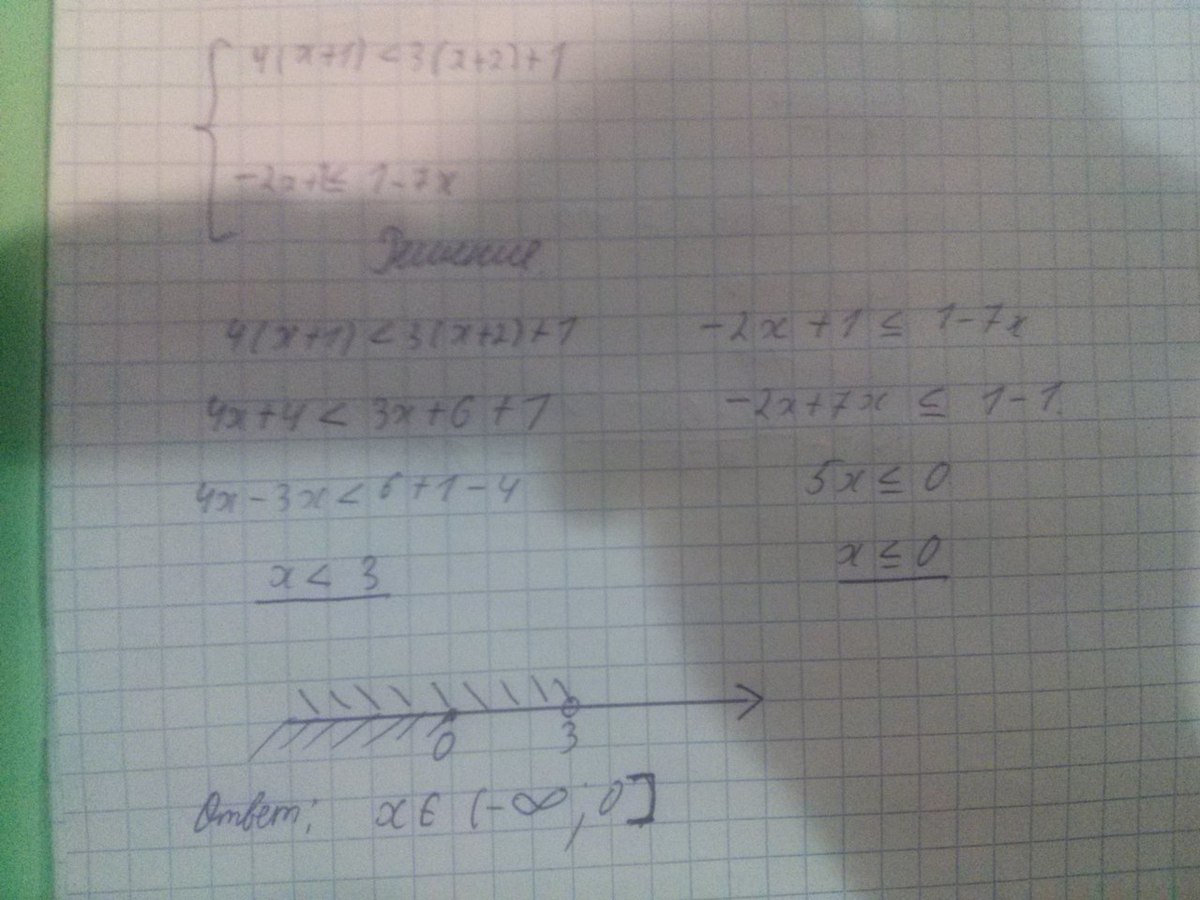 4(x+1) < 3(x+2)+1
-2x+1 ≤ 1-7x
Решение
4(x+1) < 3(x+2)+1
4x+4 < 3x+6+1
4x-3x < 6+1-4
x < 3
-2x+1 ≤ 1-7x
-2x+7x ≤ 1-1
5x ≤ 0
x ≤ 0
0 3
Ответ: x ∈ (-∞; 0]